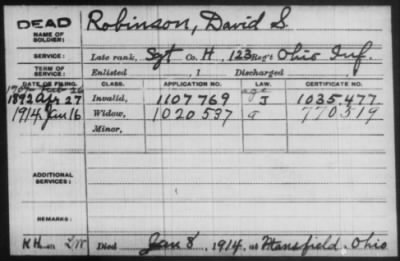 DEAD
NAME OF SOLDIER: Robinson, David S.
SERVICE: Late rank, Sgt Co. H, 123 Reg't Ohio Inf.
TERM OF SERVICE: Enlisted , 1 Discharged , 1
DATE OF FILING. CLASS. APPLICATION NO. LAW. CERTIFICATE NO.
1892 Apr 27 Invalid, 1107769 J 1035477
1914 Jan 16 Widow, 1020537 G 770519
Minor,
ADDITIONAL SERVICES:
REMARKS:
Died Jan 8, 1914, at Mansfield, Ohio